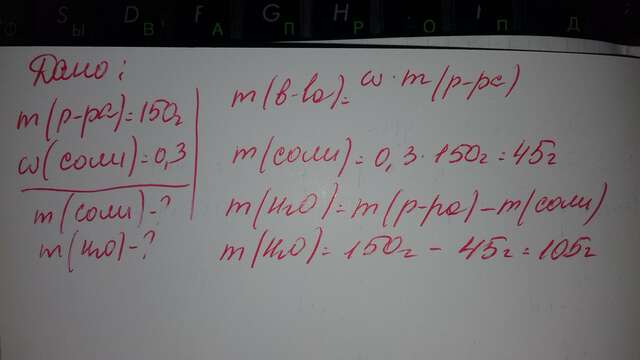 S D F G H J
О Ы В А П Р О П Д
Дано:
m(р-ра)=150г
ω(соли)=0,3
m(соли)-?
m(H2O)-?
m(в-ва)=ω·m(р-ра)
m(соли)=0,3·150г=45г
m(H2O)=m(р-ра)-m(соли)
m(H2O)=150г-45г=105г